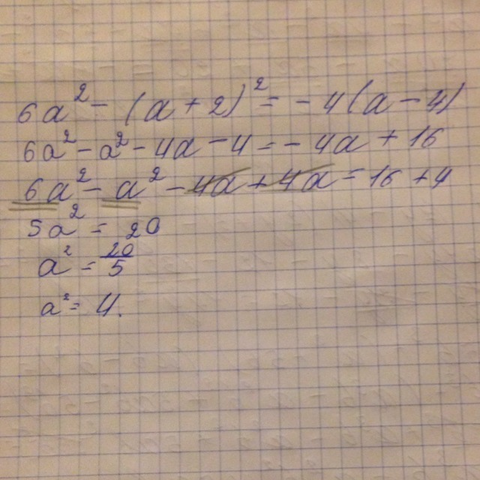 6a² - (a + 2)² = - 4(a - 4)
6a² - a² - 4a - 4 = - 4a + 16
6a² - a² - 4a + 4a = 16 + 4
5a² = 20
a² = 20/5
a² = 4.